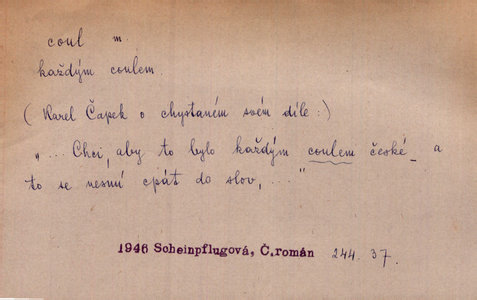 coul m.
každým coulem.
(Karel Čapek o chystaném svém díle:)
"... Chci, aby to bylo každým coulem české_ a
to se nesmí cpát do slov, ..."
1946 Scheinpflugová, Č.román 244. 37.